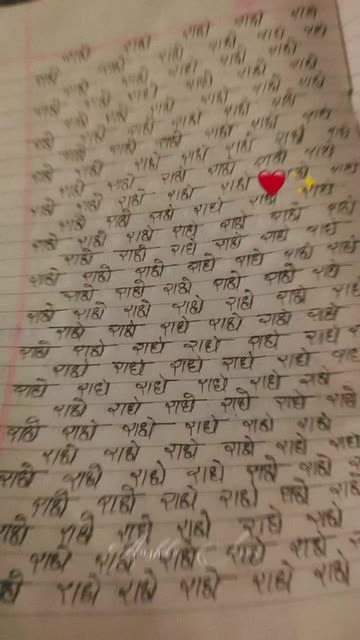 राधे राधे राधे राधे
राधे राधे राधे राधे राधे
राधे राधे राधे राधे राधे
राधे राधे राधे राधे राधे
राधे राधे राधे राधे राधे
राधे राधे राधे राधे राधे
राधे राधे राधे राधे राधे
राधे राधे राधे राधे राधे
राधे राधे राधे राधे राधे
राधे राधे राधे राधे राधे
राधे राधे राधे राधे राधे
राधे राधे राधे राधे राधे
राधे राधे राधे राधे राधे
राधे राधे राधे राधे राधे राधे
राधे राधे राधे राधे राधे
राधे राधे राधे राधे राधे राधे
राधे राधे राधे राधे राधे
राधे राधे राधे राधे राधे राधे
राधे राधे राधे राधे राधे राधे
राधे राधे राधे राधे राधे राधे
राधे राधे राधे राधे राधे राधे
राधे राधे राधे राधे राधे राधे
राधे राधे राधे राधे राधे
राधे राधे राधे राधे राधे
राधे राधे राधे राधे राधे